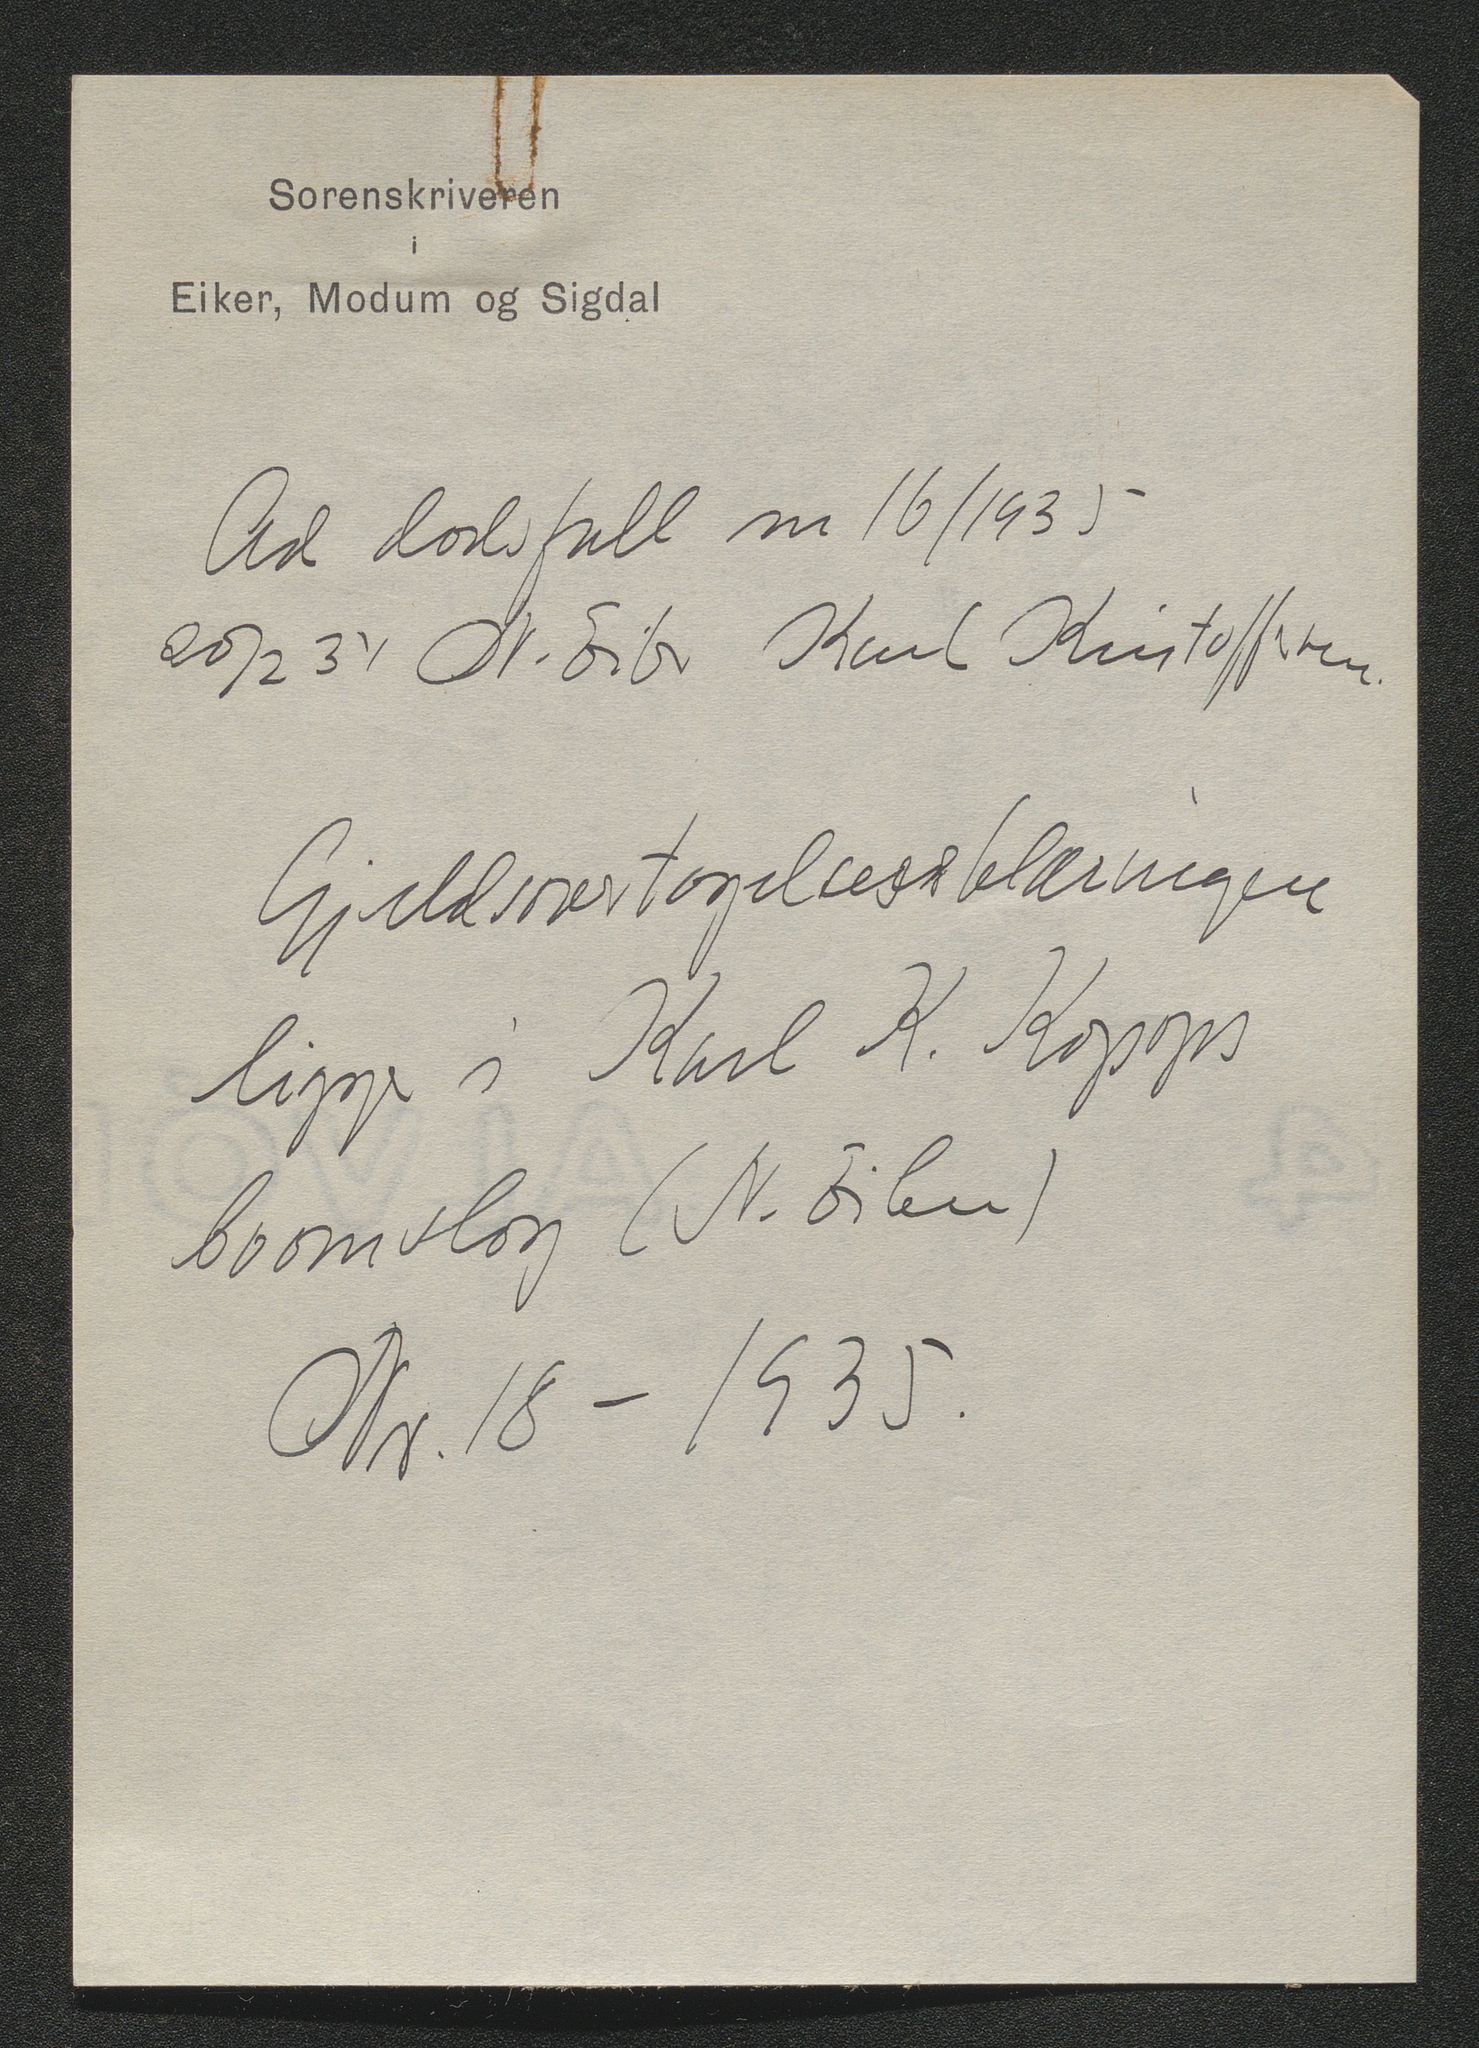 Sorenskriveren
i
Eiker, Modum og Sigdal
Ad dødsfall nr 16/1935
N. Eiker Karl Kristoffersen.
Gjeldsovertagelseserklæringen
ligge i Karl K. Kopops
boomslag (N. Eiker)
Nr. 18 - 1935.